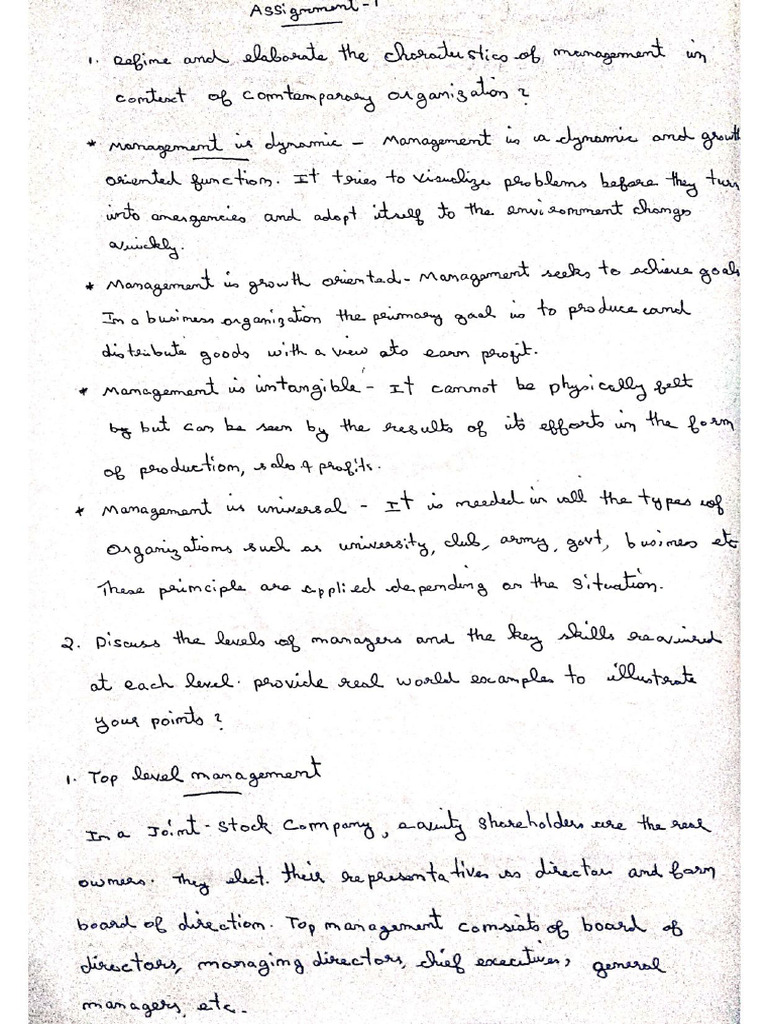 Assignment-1
1. Define and elaborate the charateristics of management in
context of comtemparary organization?
* Management is dynamic - Management is a dynamic and growth
oriented function. It tries to visualize problems before they turn
into emergencies and adopt itself to the environment change
quickly.
* Management is growth oriented - Management seeks to achieve goals
In a business organization the primary goal is to produce and
distribute goods with a view to earn profit.
* Management is intangible - It cannot be physically felt
by but can be seen by the results of its efforts in the form
of production, sales & profits.
* Management is universal - It is needed in all the types of
organizations such as university, club, army, govt, business etc
These principle are applied depending on the situation.
2. Discuss the levels of managers and the key skills required
at each level. provide real world examples to illustrate
your points?
1. Top level management
In a Joint-stock company, equity shareholders are the real
owners. They elect their representatives as director and form
board of direction. Top management consists of board of
directors, managing directors, chief executives, general
managers, etc.